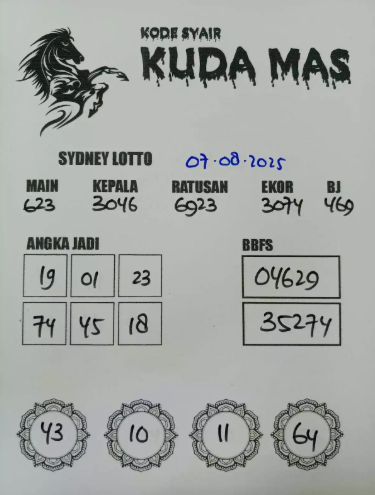 KODE SYAIR
KUDA MAS
SYDNEY LOTTO 07-08-2025
MAIN KEPALA RATUSAN EKOR BJ
623 3046 6923 3074 469
ANGKA JADI BBFS
19 01 23 04629
74 45 18 35274
43 10 11 64